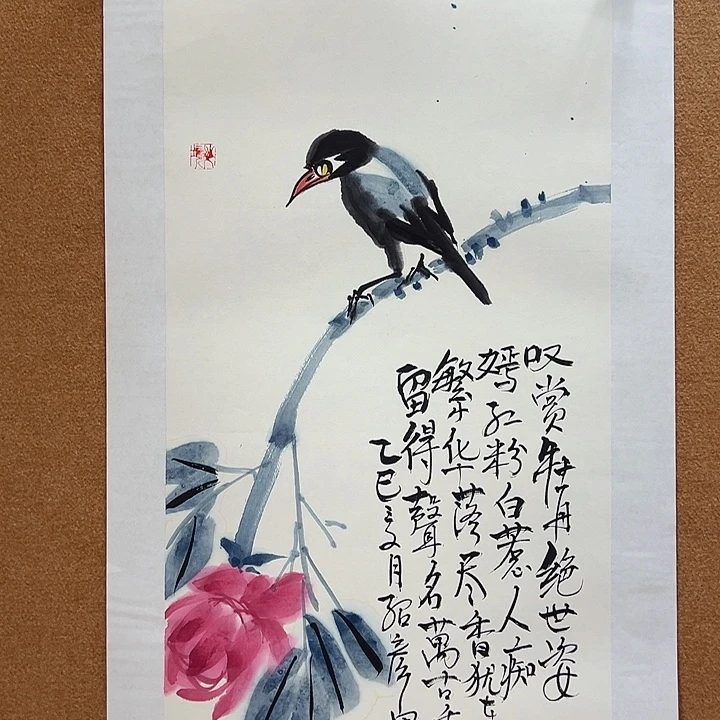 叹赏牡丹绝世姿
嫣红粉白惹人痴
繁华落尽香犹在
留得聲名萬古
乙巳 月紹彦